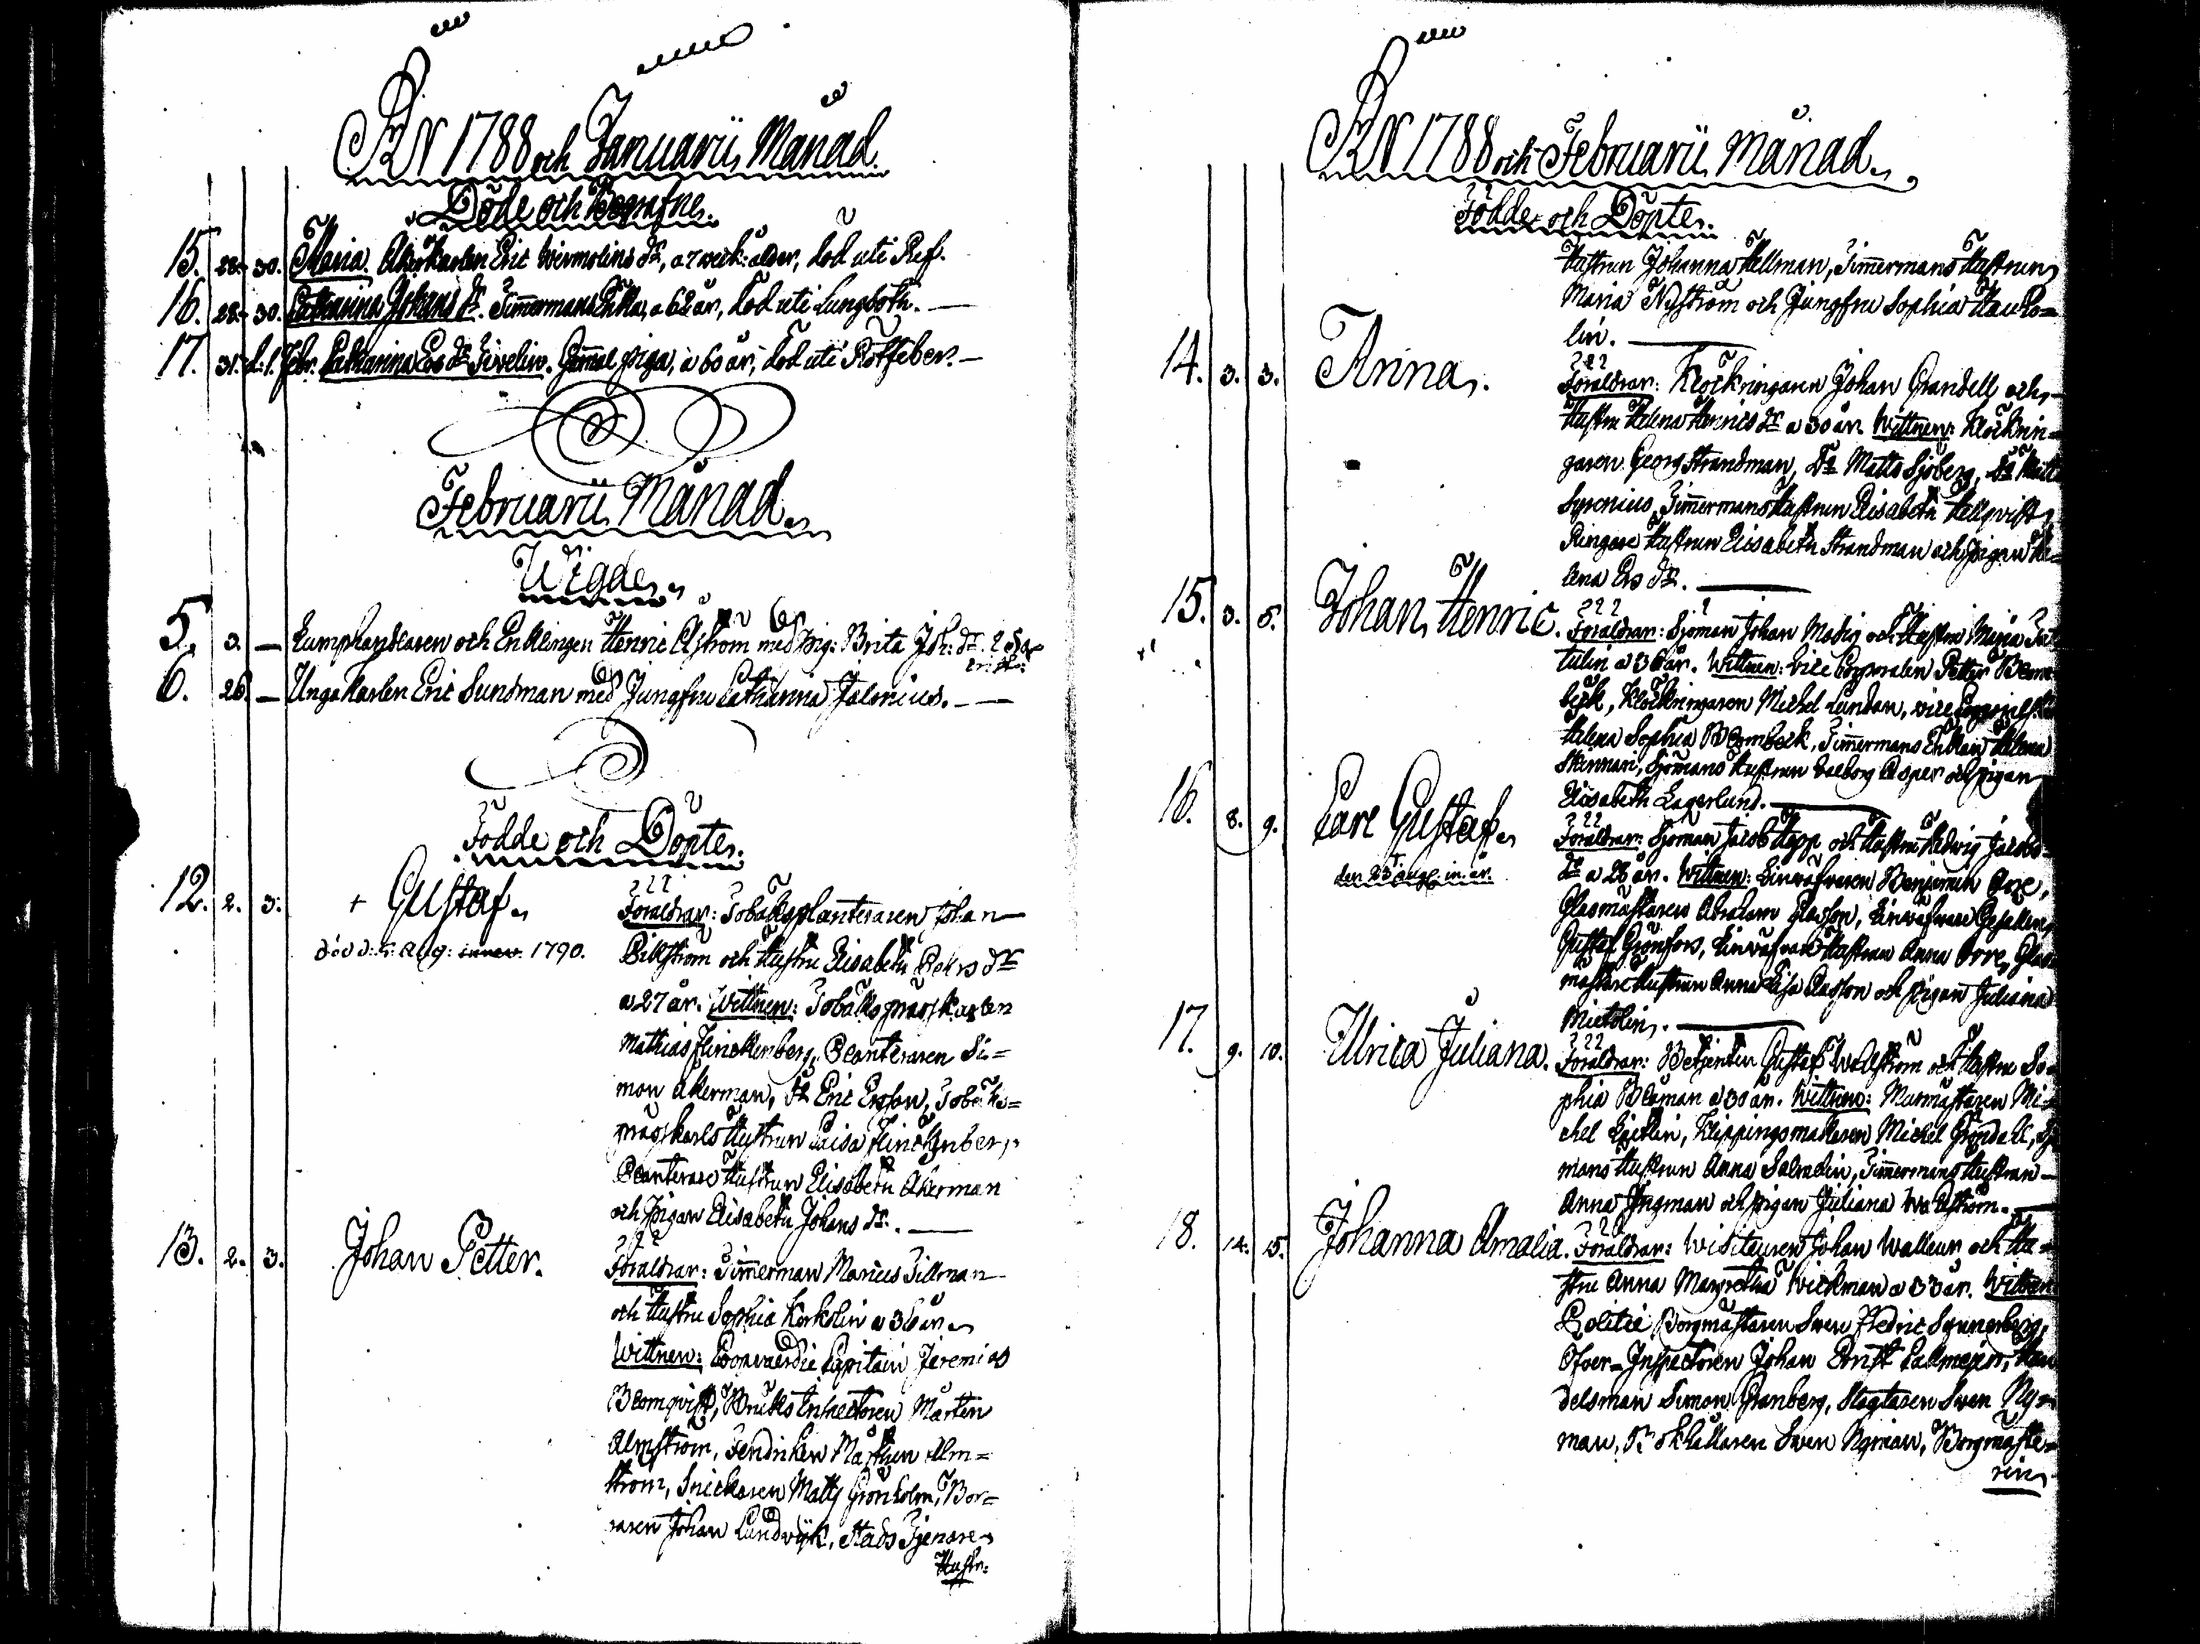 AN 1788 och Januarii Månad.
Döde och Begrafne.
15. 22. 30. Maria. Åkerkarlen Eric Wermelins dr, a 7 weck: ålder, död uti Ref.
16. 22. 30. Catharina Johans dr. Timmermans Enka, a 62 år, död uti Lungsoth.
17. 31. d: 1. Febr. Catharina Ers dr Sivelin. Gammal piga, a 60 år, död uti Rötfeber.
Februarii Månad.
Wigde.
5. 3. Lumphandlaren och Enklingen Henric Åström med Pig: Brita Joh: dr.
6. 26. Unga Karlen Eric Sundman med Jungfru Catharina Jalonius.
Födde och Döpte.
12. 2. 3. + Gustaf.
död d. 5. Aug: 1790.
Föräldrar: Tobaksplanteraren Johan
Bäkström och Hustru Elisabeth Pehrs dr
a 27 år. Wittnen: Tobakspråsskarlen
Mathias Flinckenberg, Planteraren Si=
mon Åkerman, Dr Eric Ersson, Tobaks=
prässkarls Hustrun Caisa Flinckenberg,
Planterare Hustrun Elisabeth Åkerman
och Pigan Elisabeth Johans dr.
13. 2. 3. Johan Petter.
Föräldrar: Timmerman Marius Tillman
och Hustru Sophia Korkelin a 36 år.
Wittnen: Coopvaerdie Capitain Jeremias
Blomqvist, Bruks Inspectoren Mårten
Almström, Fendriken Mårten Alm=
ström, Snickaren Matts Grönholm, Bor=
raren Johan Lundwijk, Stads Tjenare
Hustr:
AN 1788 och Februarii Månad.
Födde och Döpte.
Hustrun Johanna Hellman, Timmermans Hustrun
Maria Nyström och Jungfru Sophia
lin.
14. 3. 3. Anna.
Föräldrar: Klockringaren Johan Grandell och
Hustru Helena Henrics dr a 30 år. Wittnen: Klockrin=
garen Georg Strandman, Dr Matts Sjöberg, Dr
Syrenius, Timmermans Hustrun Elisabeth Hellqvist,
Ringare Hustrun Elisabeth Strandman och pigan He=
lena Ers dr.
15. 3. 5. Johan Henric.
Föräldrar: Sjöman Johan Modig och Hustru Maria
tulin a 36 år. Wittnen: Vice Corporalen Petter Blom=
beck, Klockringaren Michel Lundan, vice
Helena Sophia Blombeck, Timmermans Enkan Helena
Stenman, Sjömans Hustrun Walborg Asper och pigan
Elisabeth Lagerlund.
16. 8. 9. Carl Gustaf.
den 23 aug. in. år.
Föräldrar: Sjöman Jacob Hopp och Hustru Hedwig Jacobs
dr a 28 år. Wittnen: Linwäfvaren Benjamin
Glasmästaren Abraham Clason, Linwäfvare Gesellen
Gustaf Grönfors, Linwäfvare Hustrun Anna Glas
mästare Hustrun Anna Lisa Clason och pigan Juliana
Mietolin.
17. 9. 10. Ulrica Juliana.
Föräldrar: Betjenten Gustaf Wallström och Hustru So=
phia Bloman a 30 år. Wittnen: Murmästaren Mi=
chel Kjellin, Klippingsmakaren Michel Gröndahl, Sjö
mans Hustrun Anna Salmelin, Timmermans Hustrun
Anna Ingman och pigan Juliana Wallström.
18. 14. 15. Johanna Amalia.
Föräldrar: Visiteuren Johan Walleur och Hu=
stru Anna Margretha Wickman a 33 år. Wittnen
Politie Borgmästaren Swen Fredric Synnerberg,
Öfver-Inspectoren Johan Ernst Callmeyer, Han
delsman Simon Granberg, Slagtaren Swen Ny=
man, Krokhållaren Swen Nyman, Borgmäste=
rin